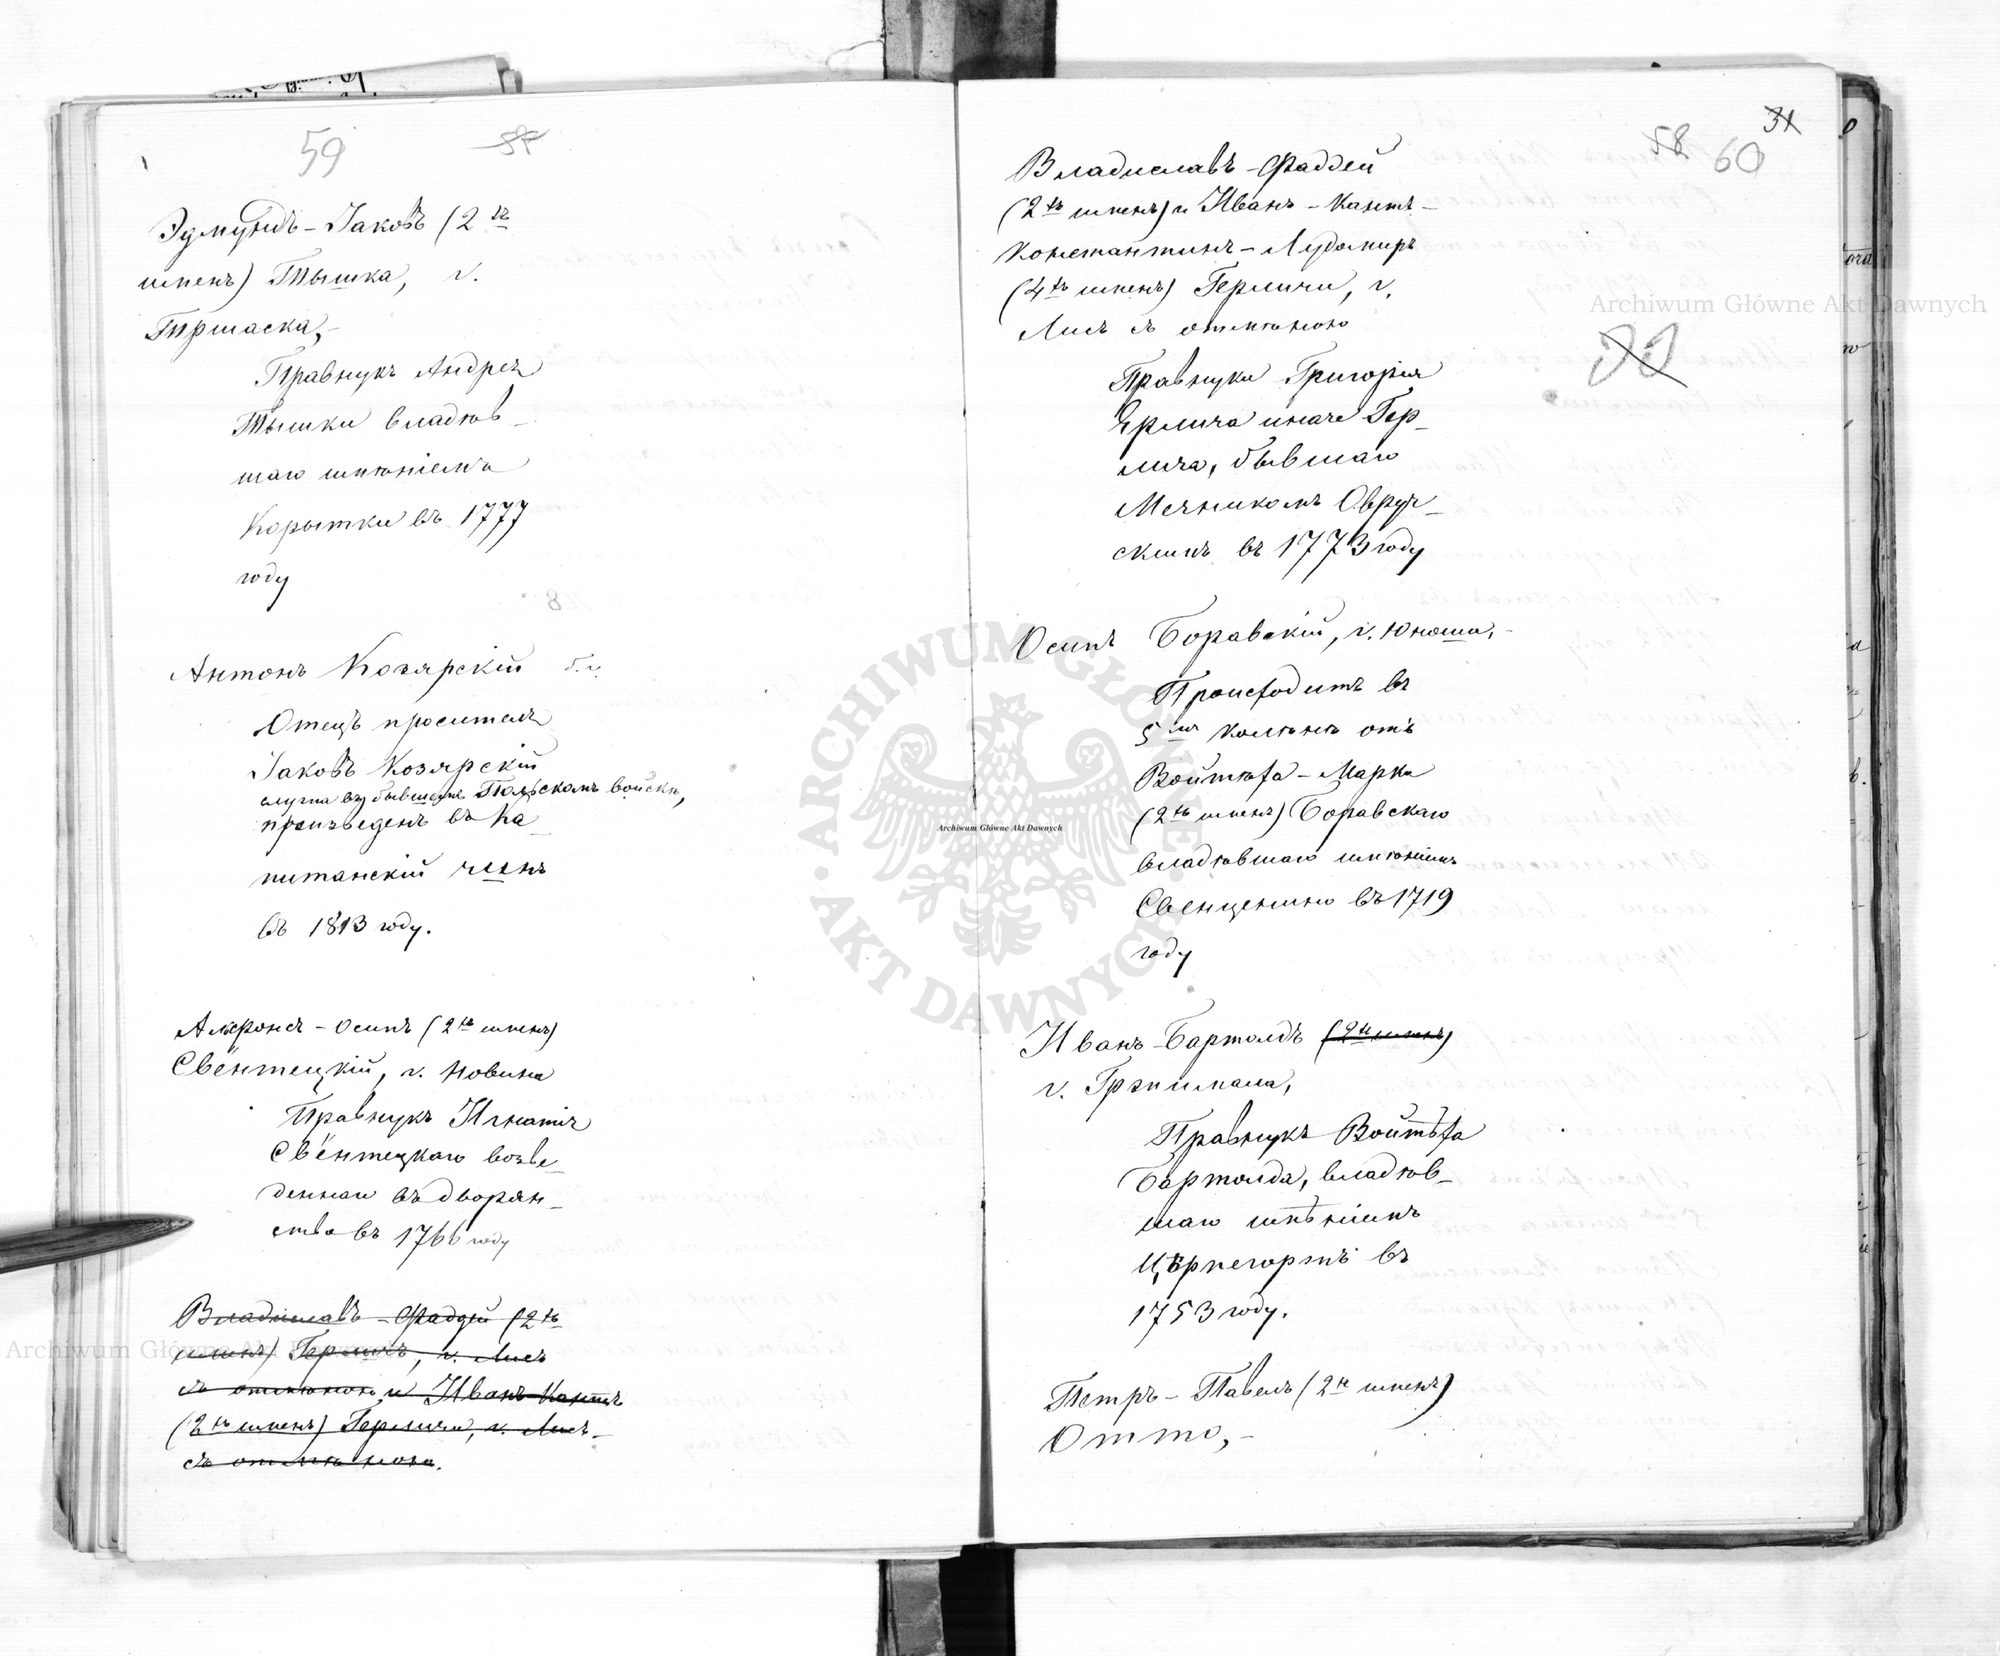 59
Эдмундъ-Iаковъ (2 хъ
именъ) Тышка, г.
Тршаска,-
Правнукъ Андрея
Тышки владѣв-
шаго имѣнiемъ
Корытки въ 1777
году
Антонъ Козярскiй б.г.
Отецъ просителя
Iаковъ Козярскiй
служа въ бывшемъ Польскомъ войскѣ,
произведенъ въ ка-
питанскiй чинъ
въ 1813 году.
Альфонсъ-Осипъ (2 хъ именъ)
Свёнтецкiй, г. Новина
Правнукъ Игнатiя
Свёнтецкаго возве-
деннаго въ дворян-
ство въ 1766 году
Владиславъ-Фаддей (2 хъ
именъ) Герличъ, г. Лисъ
съ отмѣною и Иванъ-Кантъ
(2 хъ именъ) Герличи, г. Лисъ-
съ отмѣною.
31
58 60
Владиславъ-Фаддей
(2 хъ именъ) и Иванъ-Кантъ-
Константинъ-Лудомиръ
(4 хъ именъ) Герличи, г.
Лисъ съ отмѣною
Правнуки Григорiя
Ярлича иначе Гер-
лича, бывшаго
Мечникомъ Овруч-
скимъ въ 1773 году
Осипъ Боравскiй, г. Юноша,-
Происходитъ въ
5мъ колѣнѣ отъ
Войтѣха-Марка
(2 хъ именъ) Боравскаго
владѣвшаго имѣнiемъ
Свенценино въ 1719
году
Иванъ Бартолдъ (2 хъ именъ)
г. Гржимала,
Правнукъ Войтѣха
Бартолда, владѣв-
шаго имѣнiемъ
въ
1753 году.
Петръ-Павелъ (2 хъ именъ)
Отто,-
Archiwum Główne Akt Dawnych
Archiwum Główne Akt Dawnych
Archiwum Główne Akt Dawnych
ARCHIWUM GŁÓWNE AKT DAWNYCH